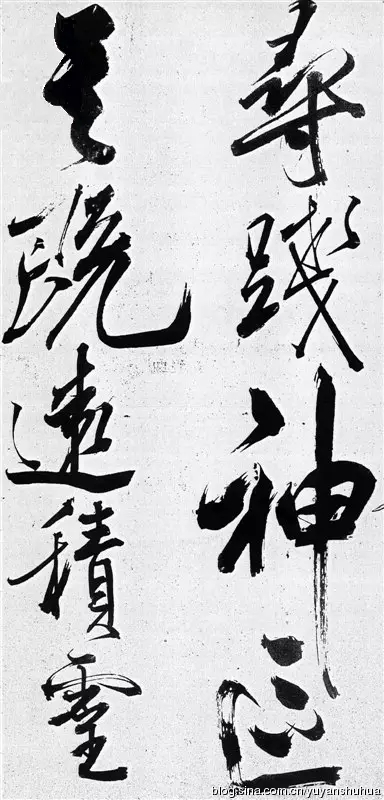 尋踐神區
其既遠積靈
blog.sina.com.cn/yuyanshuhua